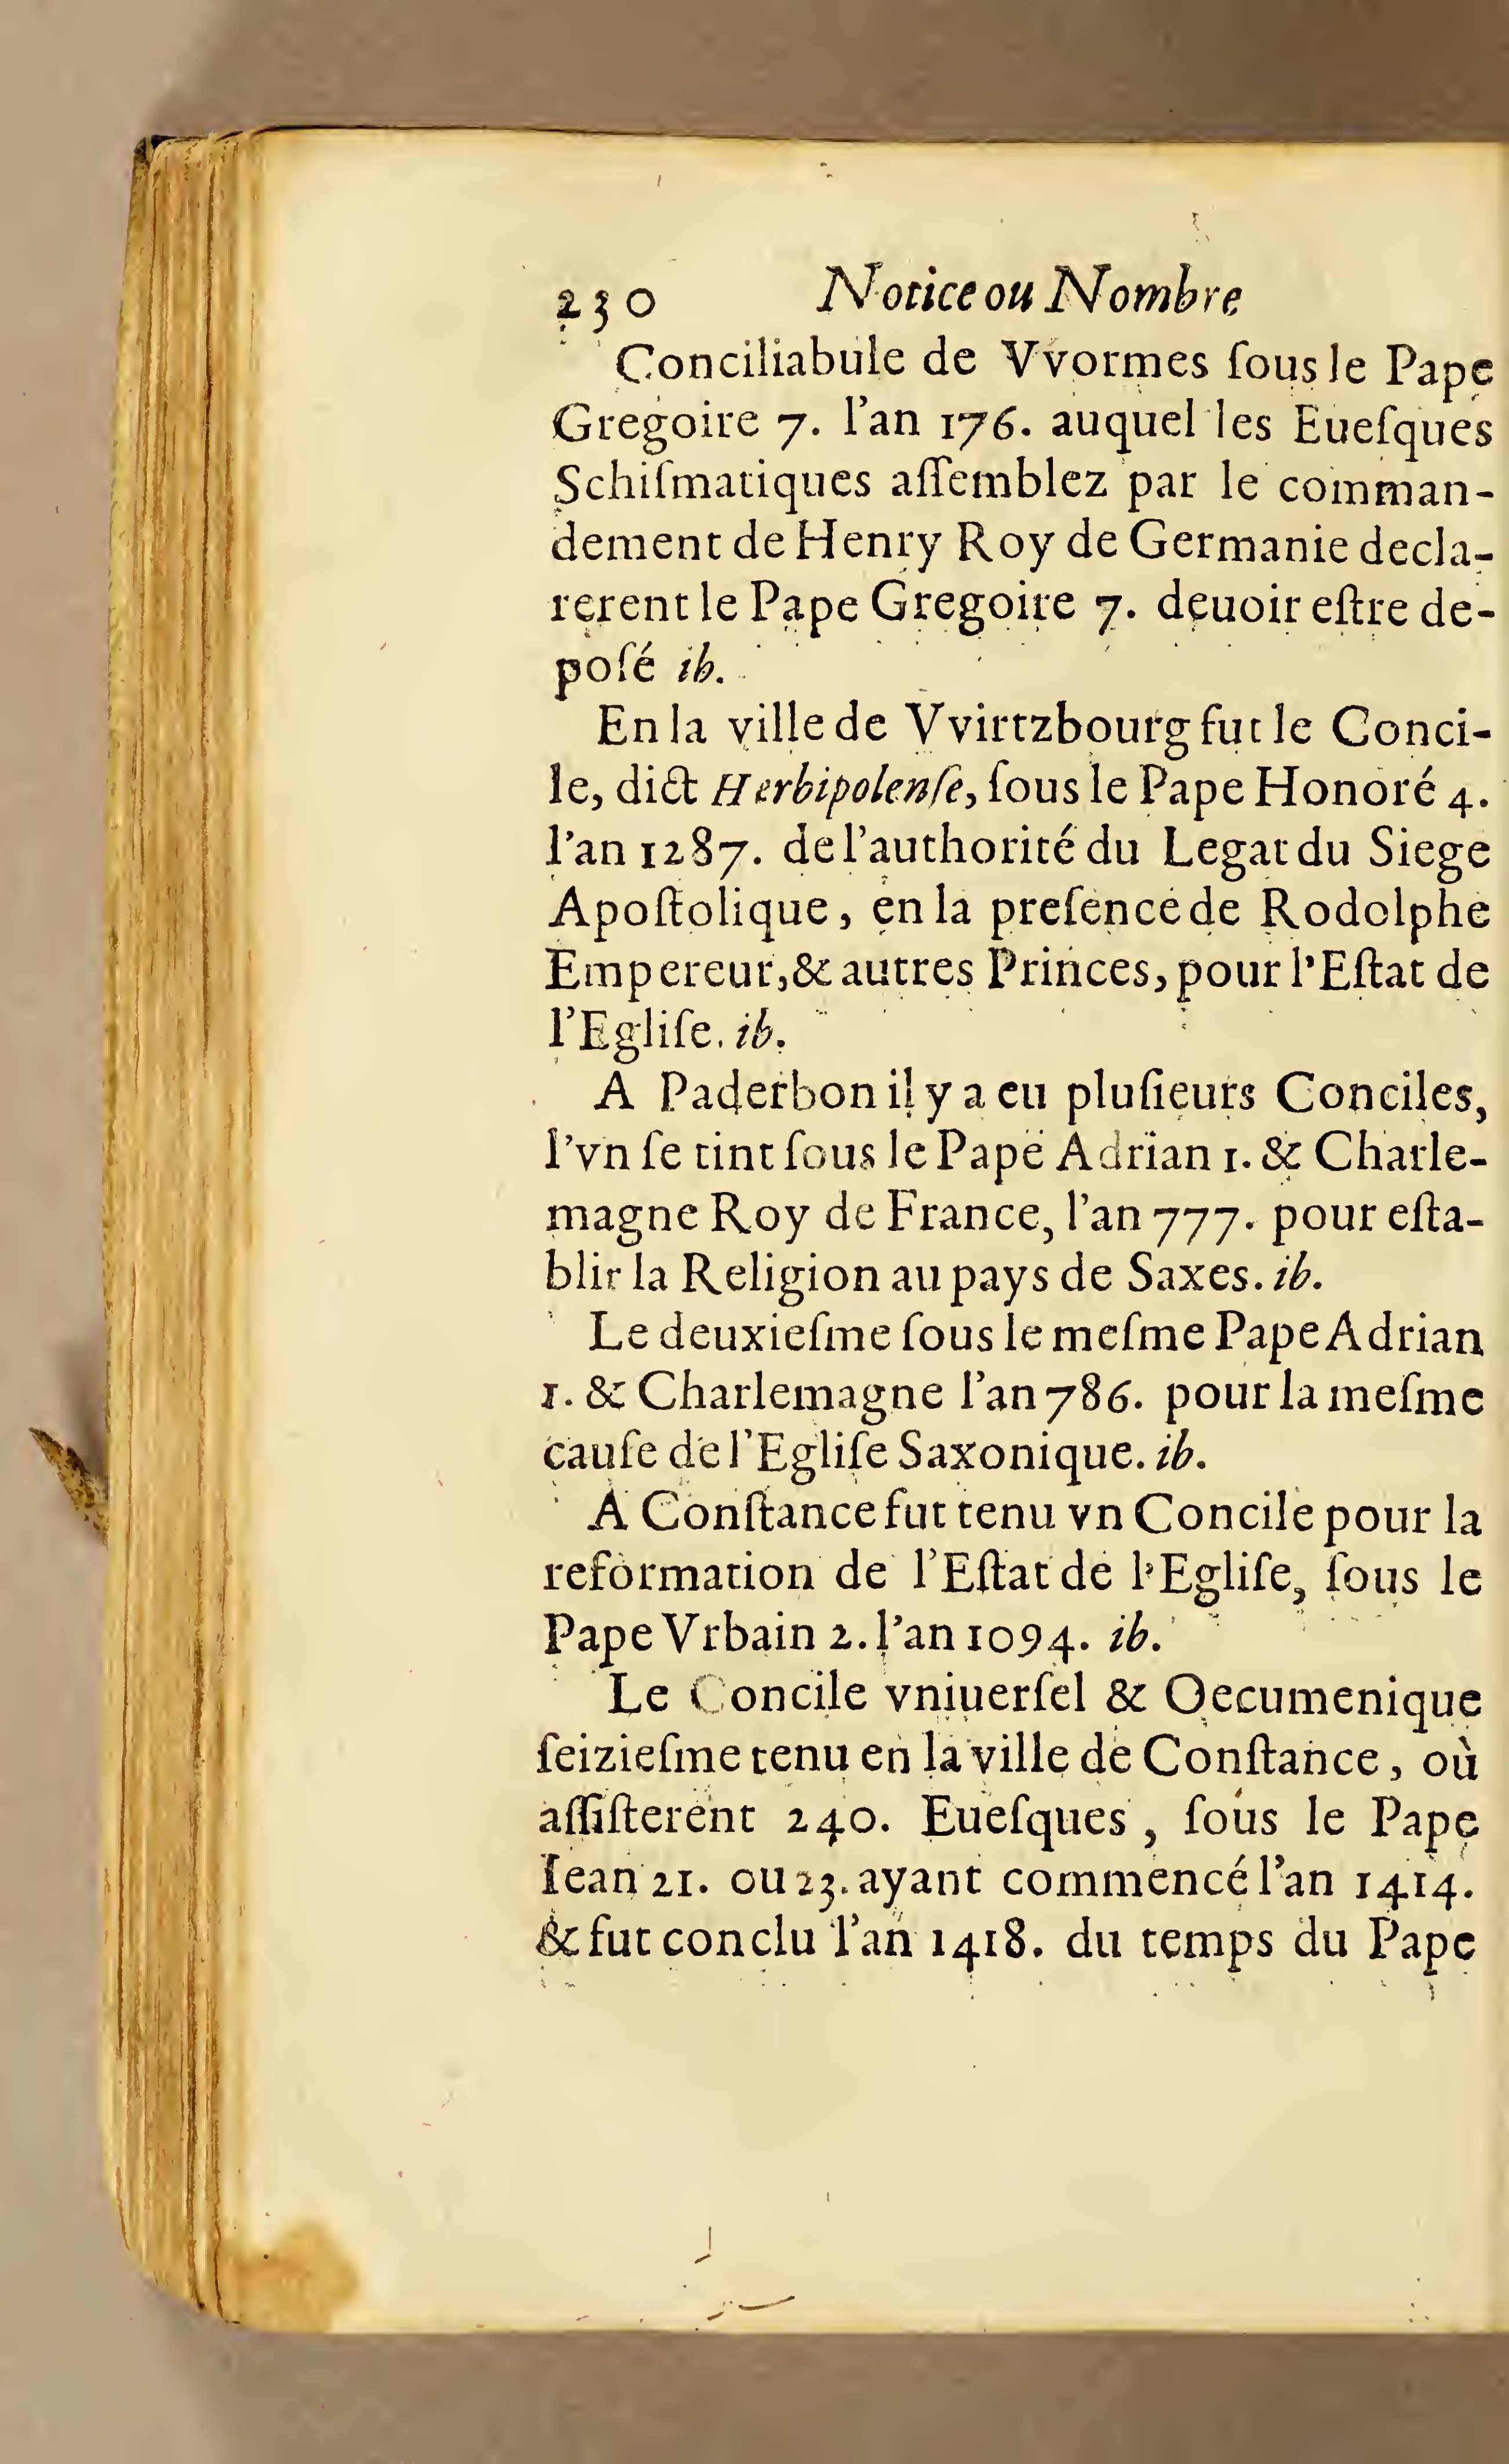 230 Notice ou Nombre
Conciliabule de Vvormes ſous le Pape
Gregoire 7. l'an 176. auquel les Eueſques
Schiſmatiques aſſemblez par le comman-
dement de Henry Roy de Germanie decla-
rerent le Pape Gregoire 7. deuoir eſtre de-
poſé ib.
En la ville de Vvirtzbourg fut le Conci-
le, dict Herbipolenſe, ſous le Pape Honoré 4.
l'an 1287. de l'authorité du Legat du Siege
Apoſtolique, en la preſence de Rodolphe
Empereur, & autres Princes, pour l'Eſtat de
l'Egliſe. ib.
A Paderbon il y a eu pluſieurs Conciles,
l'vn ſe tint ſous le Pape Adrian 1. & Charle-
magne Roy de France, l'an 777. pour eſta-
blir la Religion au pays de Saxes. ib.
Le deuxieſme ſous le meſme Pape Adrian
1. & Charlemagne l'an 786. pour la meſme
cauſe de l'Egliſe Saxonique. ib.
A Conſtance fut tenu vn Concile pour la
reformation de l'Eſtat de l'Egliſe, ſous le
Pape Vrbain 2. l'an 1094. ib.
Le Concile vniuerſel & Oecumenique
ſeizieſme tenu en la ville de Conſtance, où
aſſiſterent 240. Eueſques, ſous le Pape
Iean 21. ou 23. ayant commencé l'an 1414.
& fut conclu l'an 1418. du temps du Pape